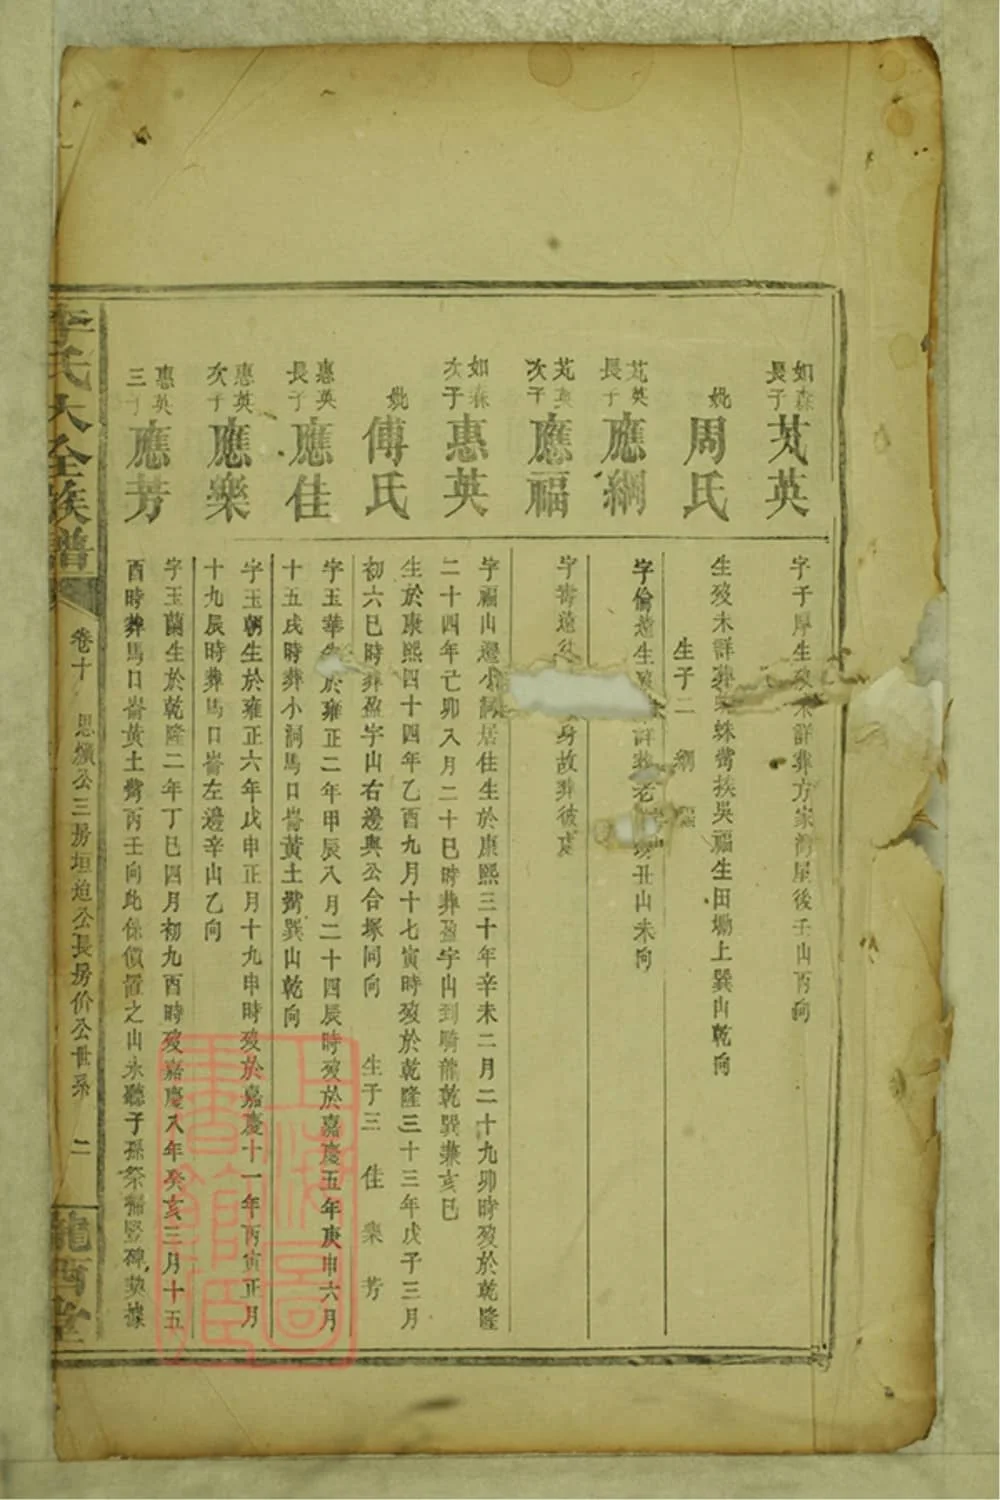 如森長子 芃英 字子厚生歿未詳葬方家灣屋後壬山丙向
妣周氏 生歿未詳葬蛛鴛挨吳福生田塝上巽山乾向
生子二 綱 福
芃英長子 應綱 字倫遠生詳老丑山未向
芃英次子 應福 字壽遠身故葬彼處
如森次子 惠英 字福山遷小洞居住生於康熙三十年辛未二月二十九卯時歿於乾隆
二十四年己卯八月二十巳時葬盈字山到騎龍乾巽兼亥巳
妣傅氏 生於康熙四十四年乙酉九月十七寅時歿於乾隆三十三年戊子三月
初六巳時葬盈字山右邊與公合塚同向 生子三 佳 樂 芳
惠英長子 應佳 字玉華生於雍正二年甲辰八月二十四辰時歿於嘉慶五年庚申六月
十五戌時葬小洞馬口崙黃土鴛巽山乾向
惠英次子 應樂 字玉朝生於雍正六年戊申正月十九申時歿於嘉慶十一年丙寅正月
十九辰時葬馬口崙左邊辛山乙向
惠英三子 應芳 字玉蘭生於乾隆二年丁巳四月初九酉時歿嘉慶八年癸亥三月十五
酉時葬馬口崙黃土鴛丙壬向此係價置之山永聽子孫祭掃豎碑契據
李氏大全族譜 卷十 思公三房垣迨公長房价公世系 二 隴西堂
上海圖書館藏